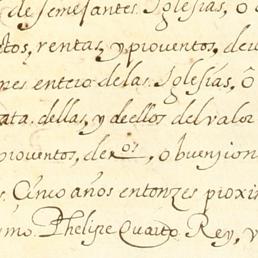 de semejantes. Iglesias, ô
ctos, rentas, y prouentos, deu
enteio delas. Iglesias, ô
rata. dellas, y decllos del valor
prouentos, der.os, o buenjion
s. Cinco años entonzes proxi
mo. Phelipe Quarto Rey, v